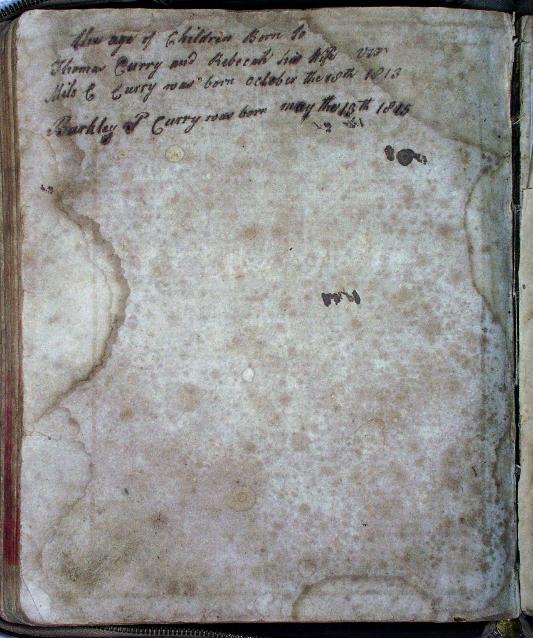 the age of Children Born to
Thomas Curry and Rebecah his Wife Viz
Milo C Curry was born october the 10th 1813
Barkley P Curry was born may the 15th 1815